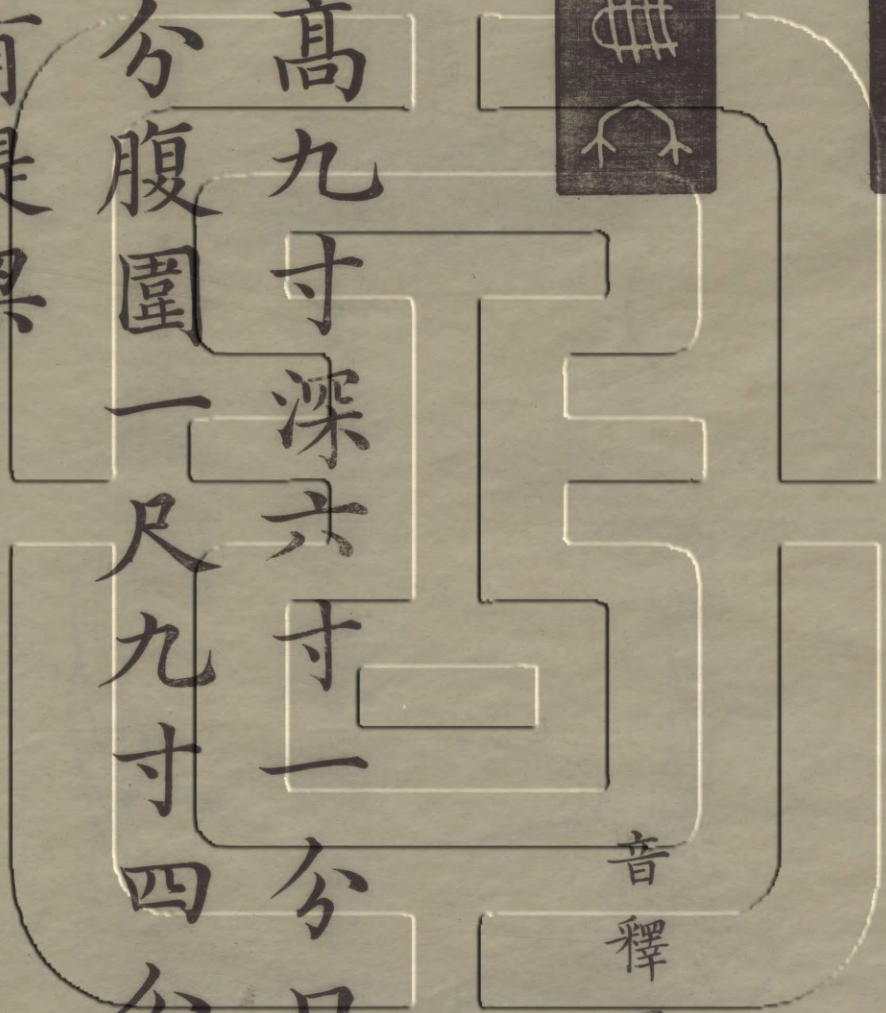 音釋
高九寸深六寸一分口
分腹圍一尺九寸四分
有提梁